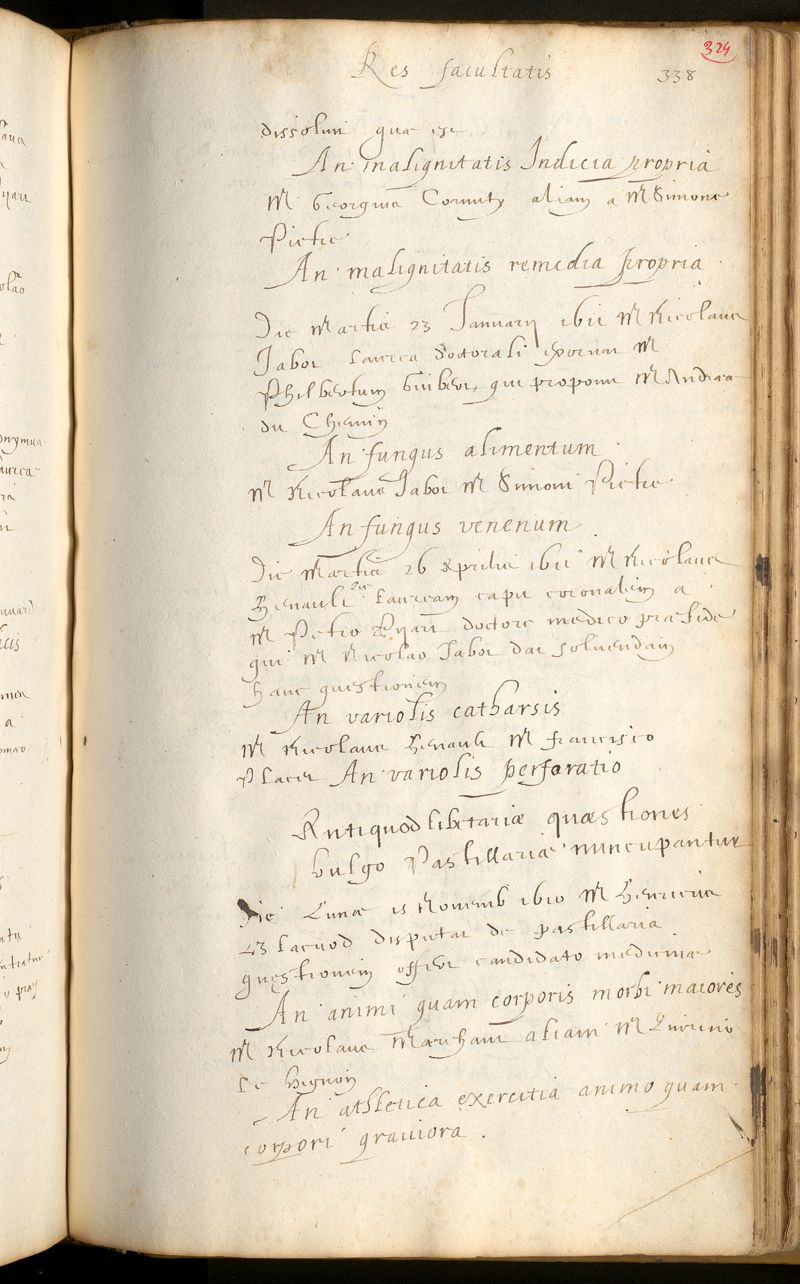 324
Res facultatis 338
dissolui quæ est
An malignitatis Indicia propria
M Georgius Cornuty aliam a M Simone
Pietre
An malignitatis remedia propria
Die Martis 23 Januarij 1611 M Nicolaus
Jabot laurea doctorali exornat M
Philbertum Guibert, qui proponit M Andreæ
du Chemin
An fungus alimentum
M Nicolaus Jabot M Simoni Pietre
An fungus venenum
Die Martis 26 Aprilis 1611 M Nicolaus
Henault lauream capit coronalem a
M Petro doctore medico præside
qui M Nicolao Jabot dat soluendam
hanc questionem
An variolis catharsis
M Nicolaus Henault M francisco
Placet An variolis perforatio
Antiquodlibetariæ quæstiones
vulgo Pastillariæ nuncupantur
Die Lunæ 15 Novemb 1610 M Henricus
disputat de pastillaria
questionem offert candidato medicinæ
An animi quam corporis morbi maiores
M Nicolaus Marchant aliam M Quirino
le Vignon
An athletica exercitia animo quam
corpori grauiora .